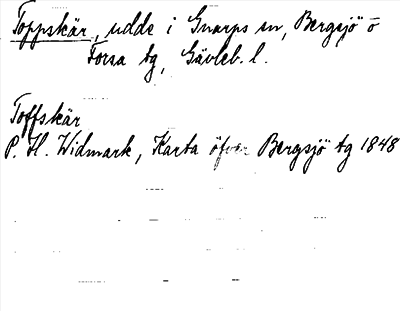 Toppskär, udde i Gnarps sn, Bergsjö o
Forsa tg, Gävleb. l.
Toffskär
P. H. Widmark, Karta öfver Bergsjö tg 1848